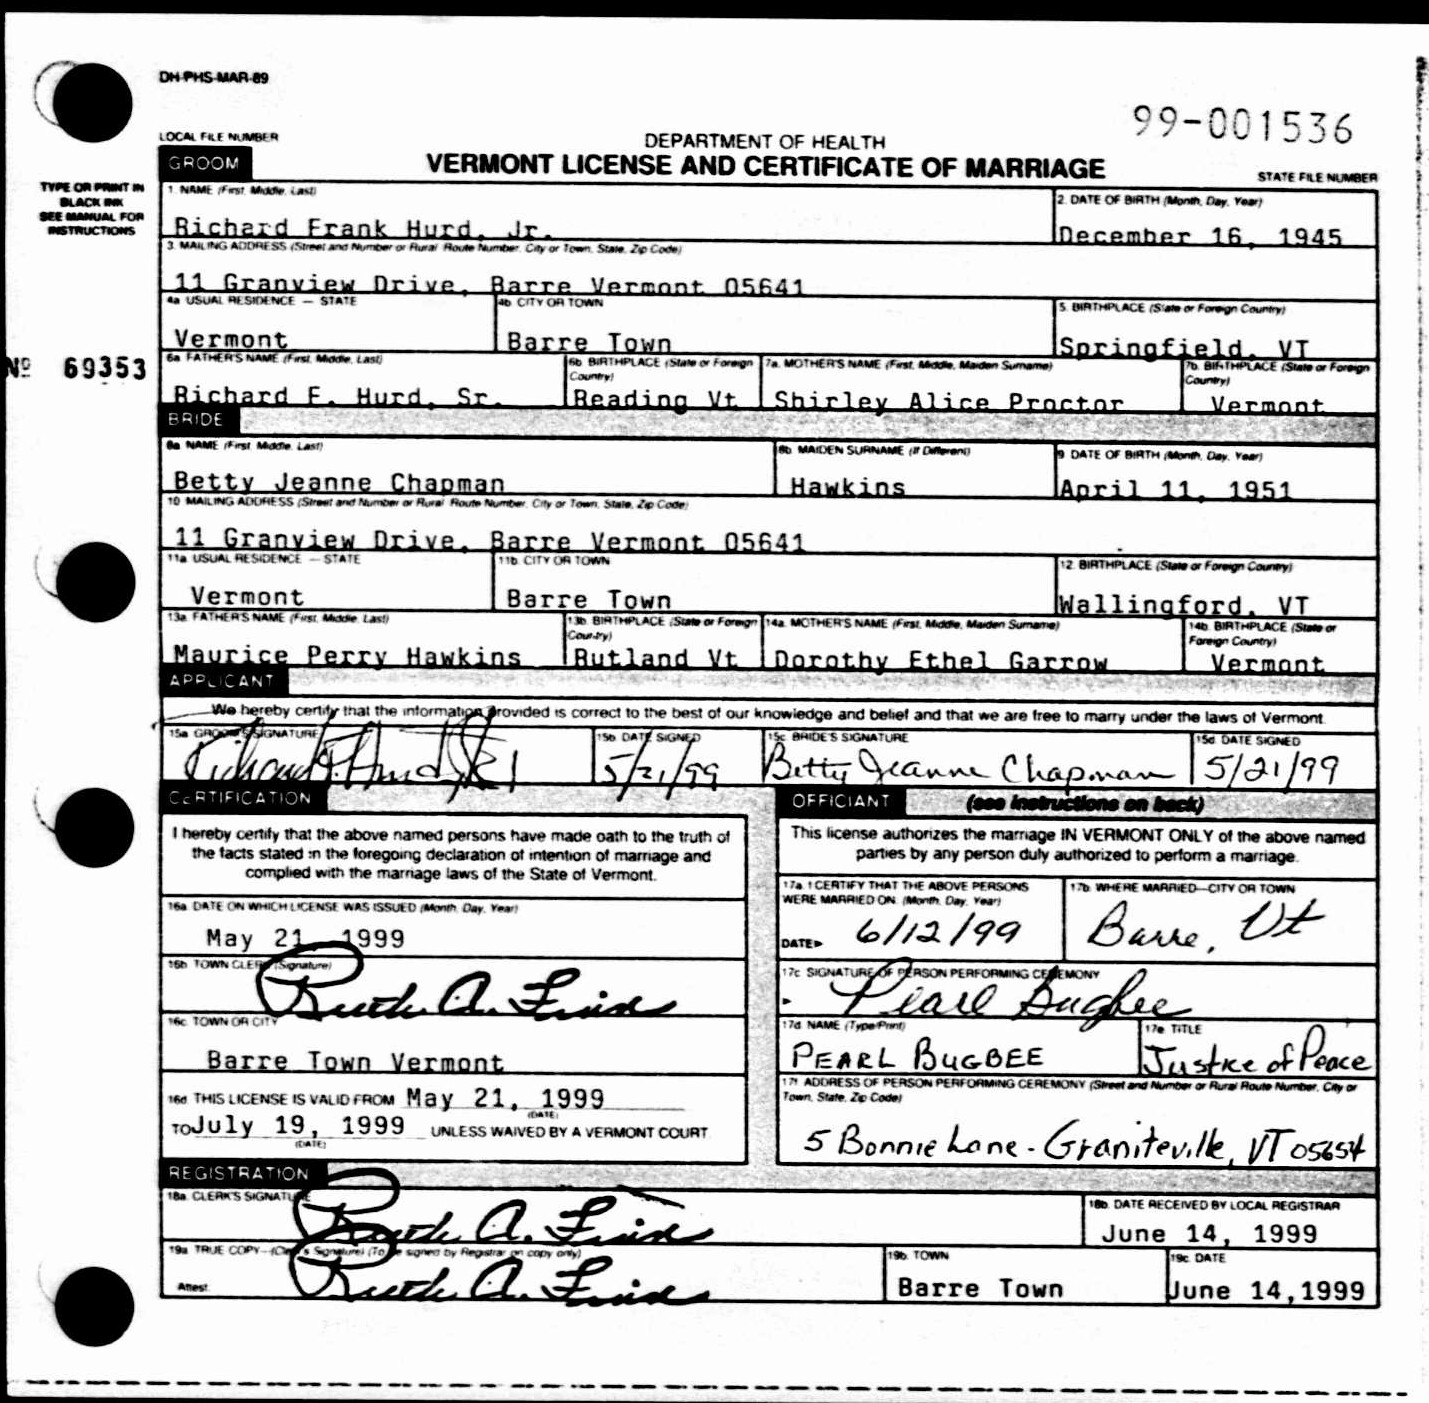 DH-PHS-MAR-89
99-001536
LOCAL FILE NUMBER
DEPARTMENT OF HEALTH
GROOM
VERMONT LICENSE AND CERTIFICATE OF MARRIAGE
STATE FILE NUMBER
TYPE OR PRINT IN
BLACK INK
SEE MANUAL FOR
INSTRUCTIONS
1. NAME (First, Middle, Last)
2. DATE OF BIRTH (Month, Day, Year)
Richard Frank Hurd, Jr.
December 16, 1945
3. MAILING ADDRESS (Street and Number or Rural Route Number, City or Town, State, Zip Code)
11 Granview Drive, Barre Vermont 05641
4a. USUAL RESIDENCE — STATE
4b. CITY OR TOWN
5. BIRTHPLACE (State or Foreign Country)
Vermont
Barre Town
Springfield, VT
Nº 69353
6a. FATHER'S NAME (First, Middle, Last)
6b. BIRTHPLACE (State or Foreign Country)
7a. MOTHER'S NAME (First, Middle, Maiden Surname)
7b. BIRTHPLACE (State or Foreign Country)
Richard F. Hurd, Sr.
Reading Vt
Shirley Alice Proctor
Vermont
BRIDE
8a. NAME (First, Middle, Last)
8b. MAIDEN SURNAME (If Different)
9. DATE OF BIRTH (Month, Day, Year)
Betty Jeanne Chapman
Hawkins
April 11, 1951
10. MAILING ADDRESS (Street and Number or Rural Route Number, City or Town, State, Zip Code)
11 Granview Drive, Barre Vermont 05641
11a. USUAL RESIDENCE — STATE
11b. CITY OR TOWN
12. BIRTHPLACE (State or Foreign Country)
Vermont
Barre Town
Wallingford, VT
13a. FATHER'S NAME (First, Middle, Last)
13b. BIRTHPLACE (State or Foreign Country)
14a. MOTHER'S NAME (First, Middle, Maiden Surname)
14b. BIRTHPLACE (State or Foreign Country)
Maurice Perry Hawkins
Rutland Vt
Dorothy Ethel Garrow
Vermont
APPLICANT
We hereby certify that the information provided is correct to the best of our knowledge and belief and that we are free to marry under the laws of Vermont.
15a. GROOM'S SIGNATURE
15b. DATE SIGNED
15c. BRIDE'S SIGNATURE
15d. DATE SIGNED
Richard F. Hurd, Jr.
5/21/99
Betty Jeanne Chapman
5/21/99
CERTIFICATION
I hereby certify that the above named persons have made oath to the truth of
the facts stated in the foregoing declaration of intention of marriage and
complied with the marriage laws of the State of Vermont.
16a. DATE ON WHICH LICENSE WAS ISSUED (Month, Day, Year)
May 21, 1999
16b. TOWN CLERK (Signature)
Ruth A.
16c. TOWN OR CITY
Barre Town Vermont
16d. THIS LICENSE IS VALID FROM May 21, 1999
(DATE)
TO July 19, 1999 UNLESS WAIVED BY A VERMONT COURT.
(DATE)
OFFICIANT (see instructions on back)
This license authorizes the marriage IN VERMONT ONLY of the above named
parties by any person duly authorized to perform a marriage.
17a. I CERTIFY THAT THE ABOVE PERSONS
WERE MARRIED ON: (Month, Day, Year)
17b. WHERE MARRIED—CITY OR TOWN
DATE▶ 6/12/99
Barre, Vt
17c. SIGNATURE OF PERSON PERFORMING CEREMONY
Pearl Bugbee
17d. NAME (Type/Print)
17e. TITLE
PEARL BUGBEE
Justice of Peace
17f. ADDRESS OF PERSON PERFORMING CEREMONY (Street and Number or Rural Route Number, City or
Town, State, Zip Code)
5 Bonnie Lane - Graniteville, VT 05654
REGISTRATION
18a. CLERK'S SIGNATURE
18b. DATE RECEIVED BY LOCAL REGISTRAR
Ruth A.
June 14, 1999
19a. TRUE COPY—(Clerk's Signature) (To be signed by Registrar on copy only)
19b. TOWN
19c. DATE
Attest:
Ruth A.
Barre Town
June 14,1999